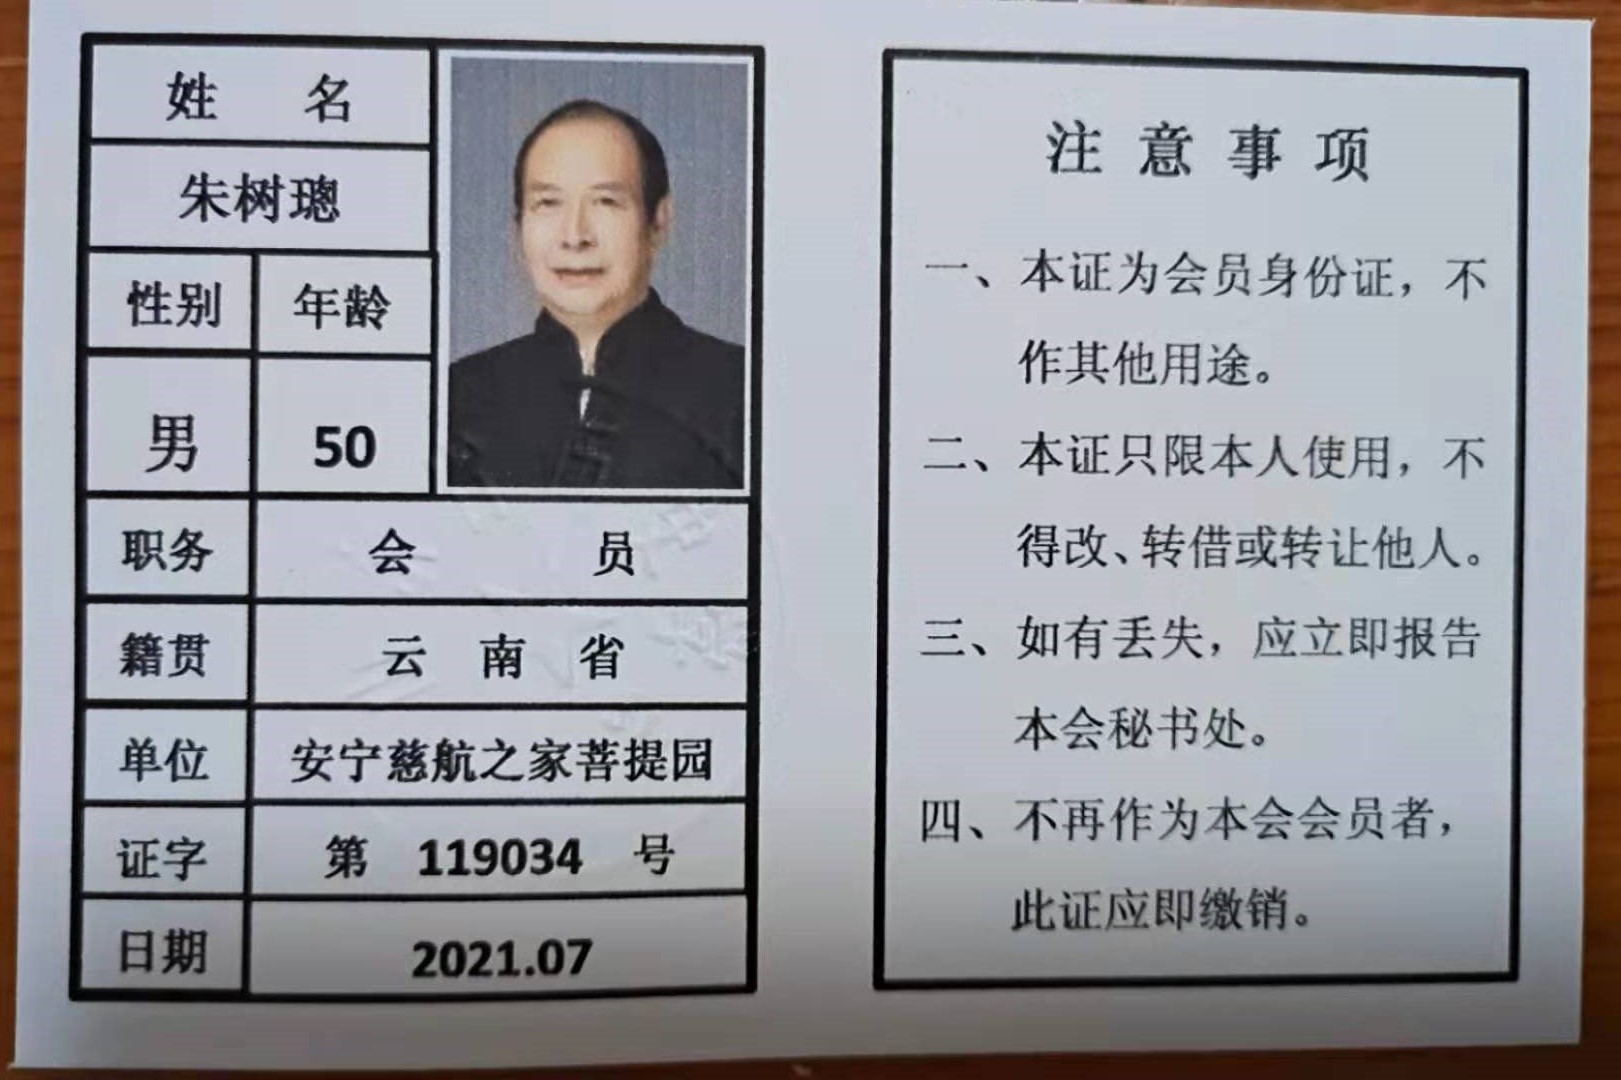 姓 名
朱树璁
性别 年龄
男 50
职务 会 员
籍贯 云 南 省
单位 安宁慈航之家菩提园
证字 第 119034 号
日期 2021.07
注 意 事 项
一、本证为会员身份证，不
作其他用途。
二、本证只限本人使用，不
得改、转借或转让他人。
三、如有丢失，应立即报告
本会秘书处。
四、不再作为本会会员者，
此证应即缴销。